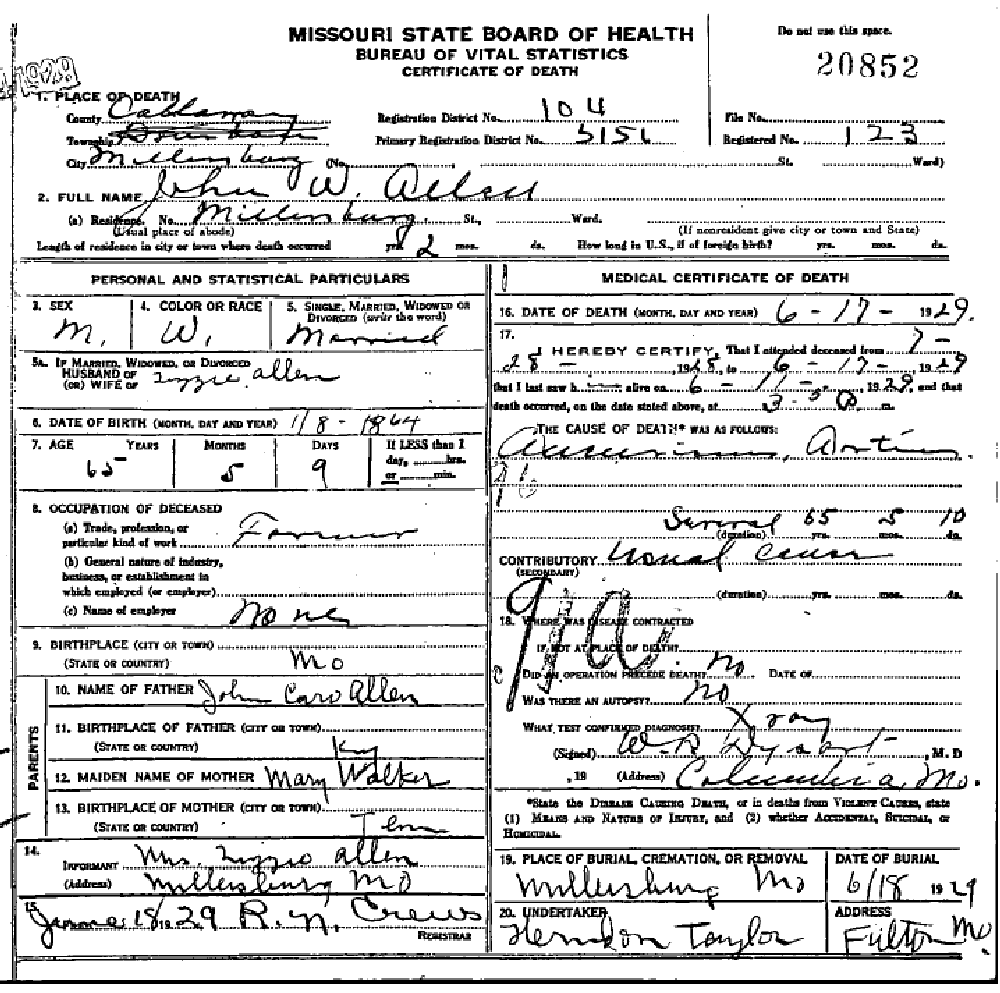 MISSOURI STATE BOARD OF HEALTH
BUREAU OF VITAL STATISTICS
CERTIFICATE OF DEATH
Do not use this space.
20852
1929
1. PLACE OF DEATH
County Callaway Registration District No. 104 File No.
Township Primary Registration District No. 5151 Registered No. 123
City Millersburg (No. St. Ward)
2. FULL NAME John W. Allen
(a) Residence. No. Millersburg St., Ward.
(Usual place of abode) (If nonresident give city or town and State)
Length of residence in city or town where death occurred yrs. 2 mos. ds. How long in U.S., if of foreign birth? yrs. mos. ds.
PERSONAL AND STATISTICAL PARTICULARS
3. SEX 4. COLOR OR RACE 5. SINGLE, MARRIED, WIDOWED OR
DIVORCED (write the word)
M. W. Married
5A. IF MARRIED, WIDOWED, OR DIVORCED
HUSBAND OF
(OR) WIFE OF Lizzie Allen
6. DATE OF BIRTH (MONTH, DAY AND YEAR) 1/8-1864
7. AGE YEARS MONTHS DAYS If LESS than 1
day, hrs.
or min.
65 5 9
8. OCCUPATION OF DECEASED
(a) Trade, profession, or
particular kind of work Farmer
(b) General nature of industry,
business, or establishment in
which employed (or employer)
(c) Name of employer None
9. BIRTHPLACE (CITY OR TOWN)
(STATE OR COUNTRY) Mo
PARENTS
10. NAME OF FATHER John Caro Allen
11. BIRTHPLACE OF FATHER (CITY OR TOWN)
(STATE OR COUNTRY) Ky
12. MAIDEN NAME OF MOTHER Mary Walker
13. BIRTHPLACE OF MOTHER (CITY OR TOWN)
(STATE OR COUNTRY) Tenn
14.
INFORMANT Mrs. Lizzie Allen
(Address) Millersburg Mo
15.
June 18 1929 R. N. Crews
REGISTRAR
MEDICAL CERTIFICATE OF DEATH
16. DATE OF DEATH (MONTH, DAY AND YEAR) 6-17-1929.
17.
I HEREBY CERTIFY, That I attended deceased from 7-
28-, 1928, to 6-17-, 1929
that I last saw h alive on 6-11-, 1929, and that
death occurred, on the date stated above, at 3-50 P. m.
THE CAUSE OF DEATH* WAS AS FOLLOWS:
Aneurism, Aortic
Several 65 5 10
(duration) yrs. mos. ds.
CONTRIBUTORY usual cause
(SECONDARY)
(duration) yrs. mos. ds.
91a.
18. WHERE WAS DISEASE CONTRACTED
IF NOT AT PLACE OF DEATH?
DID AN OPERATION PRECEDE DEATH? no DATE OF
WAS THERE AN AUTOPSY? no
WHAT TEST CONFIRMED DIAGNOSIS? X ray
(Signed) W. R. Dysart, M. D
, 19 (Address) Columbia, Mo.
*State the DISEASE CAUSING DEATH, or in deaths from VIOLENT CAUSES, state
(1) MEANS AND NATURE OF INJURY, and (2) whether ACCIDENTAL, SUICIDAL, or
HOMICIDAL.
19. PLACE OF BURIAL, CREMATION, OR REMOVAL DATE OF BURIAL
Millersburg Mo 6/18 1929
20. UNDERTAKER ADDRESS
Herndon Taylor Fulton Mo